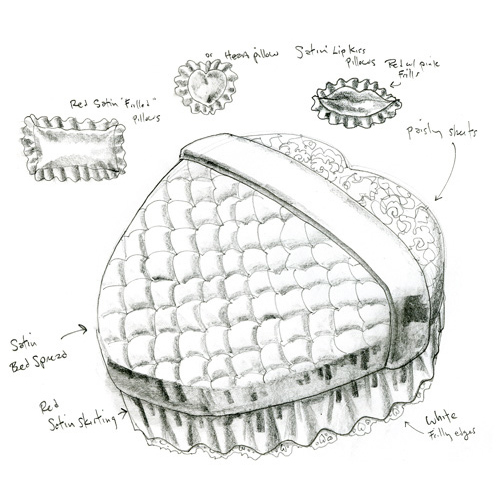 or Heart pillow
Satin Lip kiss
Pillows
Red w/ pink
Frills
Red Satin "Frilled"
Pillows
paisly sheets
Satin
Bed Spread
Red
Satin skirting
White
Frilly edges